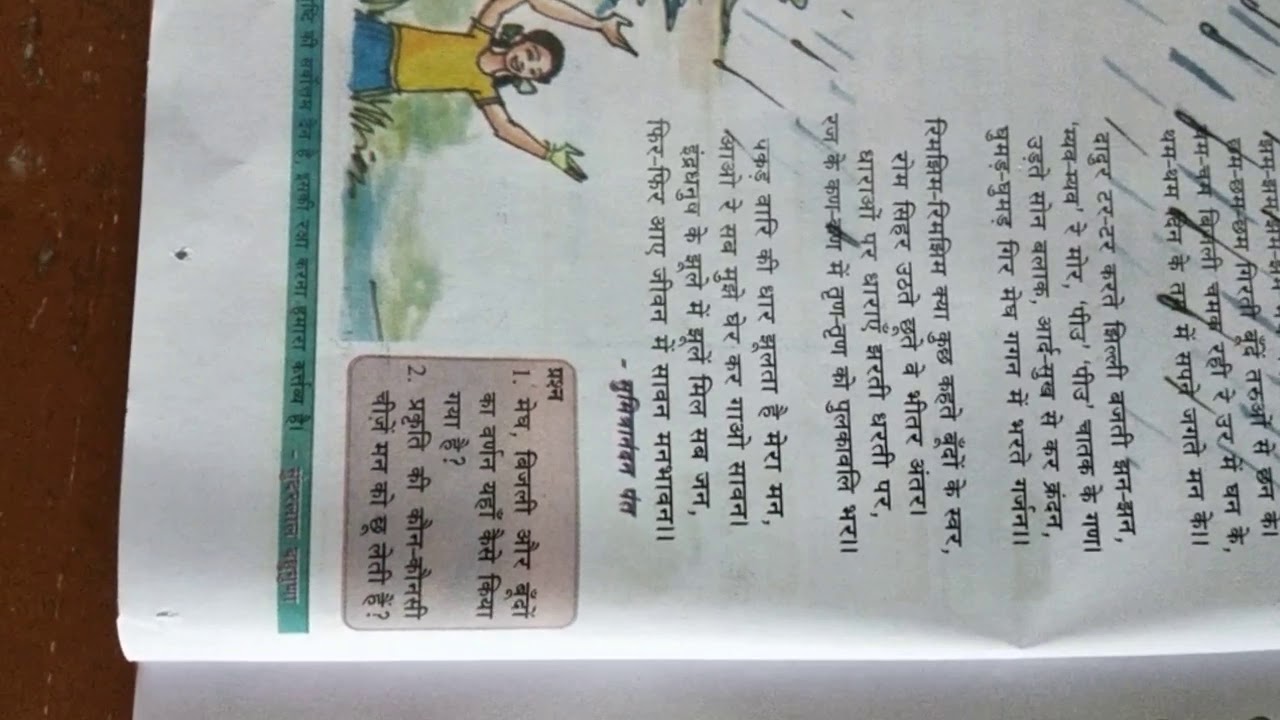 छम-छम-छम गिरतीं बूँदें तरुओं से छन के।
चम-चम बिजली चमक रही रे उर में घन के,
थम-थम दिन के तम में सपने जगते मन के॥
दादुर टर-टर करते झिल्ली बजती झन-झन,
'म्यव-म्यव' रे मोर, 'पीउ' 'पीउ' चातक के गण।
उड़ते सोन बलाक, आर्द-सुख से कर क्रंदन,
घुमड़-घुमड़ गिर मेघ गगन में भरते गर्जन॥
रिमझिम-रिमझिम क्या कुछ कहते बूँदों के स्वर,
रोम सिहर उठते छूते वे भीतर अंतर।
धाराओं पर धाराएँ झरती धरती पर,
रज के कण-कण में तृण-तृण को पुलकावलि भर॥
पकड़ वारि की धार झूलता है मेरा मन,
आओ रे सब मुझे घेर कर गाओ सावन।
इंद्रधनुष के झूले में झूलें मिल सब जन,
फिर-फिर आए जीवन में सावन मनभावन॥
- सुमित्रानंदन पंत
प्रश्न
1. मेघ, बिजली और बूँदों
का वर्णन यहाँ कैसे किया
गया है?
2. प्रकृति की कौन-कौनसी
चीज़ें मन को छू लेती हैं?
की सर्वोत्तम देन है, इसकी रक्षा करना हमारा कर्तव्य है। - सुंदरलाल बहुगुणा